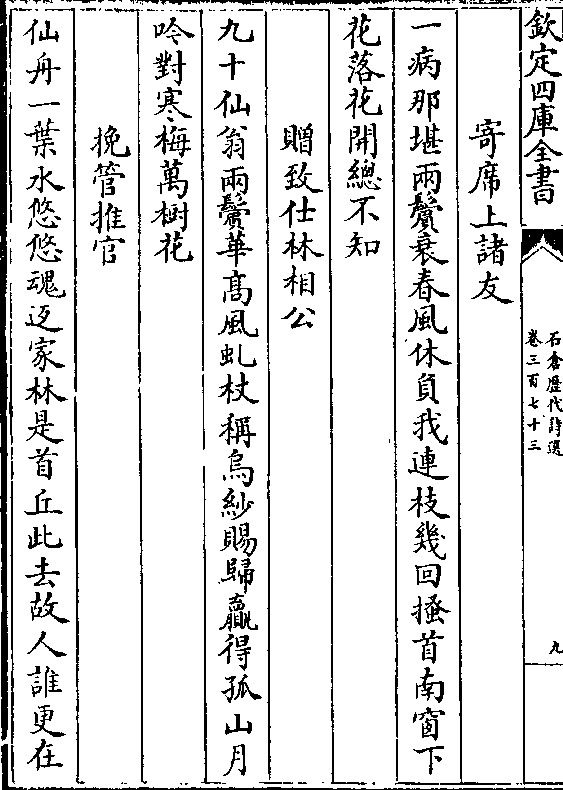 欽定四庫全書
石倉歷代詩選
卷三百七十三
九
寄席上諸友
一病那堪兩鬢衰春風休負我連枝幾回搔首南窗下
花落花開總不知
贈致仕林相公
九十仙翁兩鬢華髙風虬杖稱烏紗賜歸贏得孤山月
吟對寒梅萬樹花
挽管推官
仙舟一葉水悠悠魂返家林是首丘此去故人誰更在